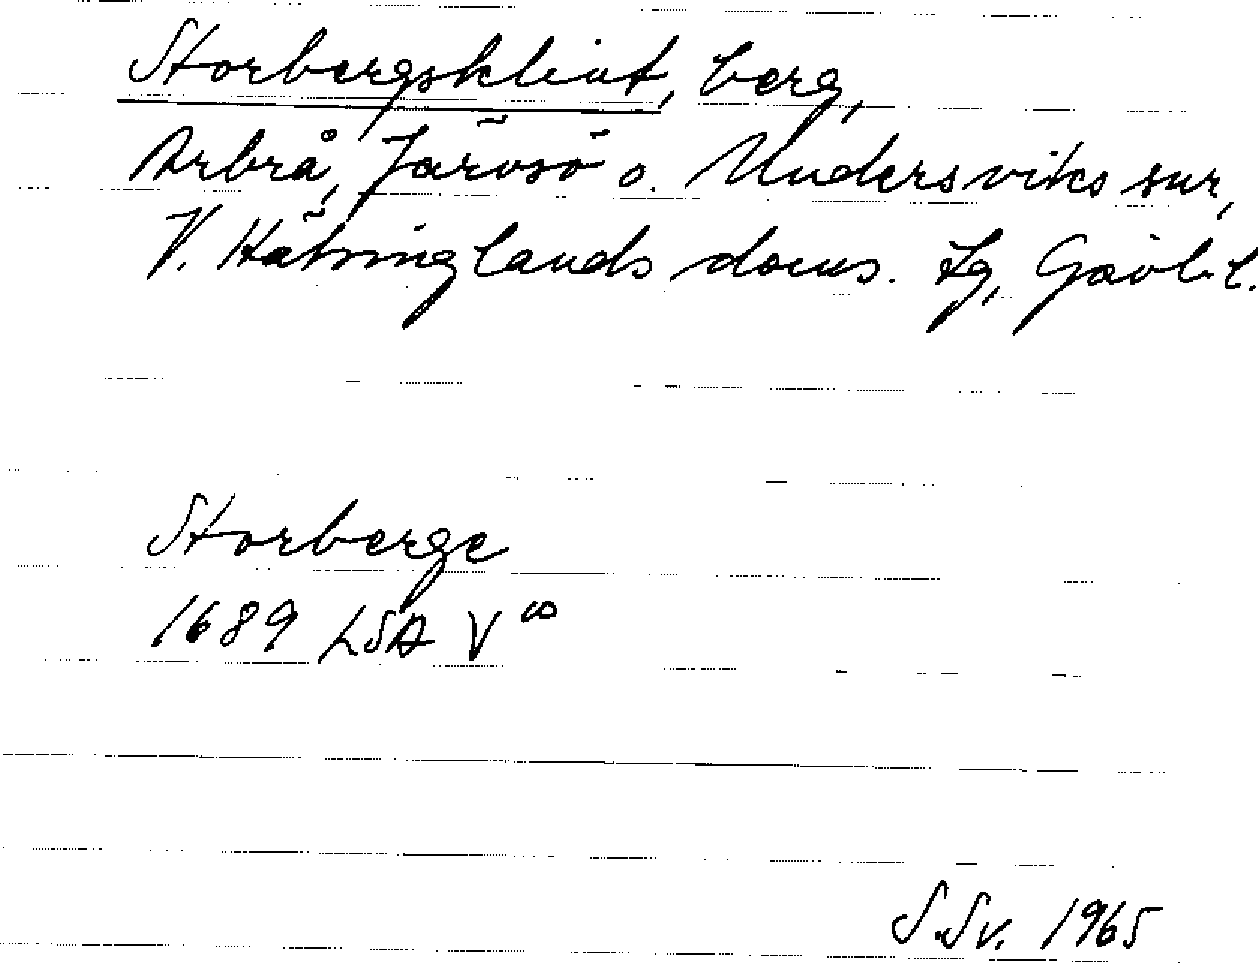 Storbergsklint, berg,
Arbrå, Järvsö o. Undersviks snr,
V. Hälsinglands doms. Lg, Gävleb. l.
Storberge
1689 LSA V∞
S.Sv. 1965